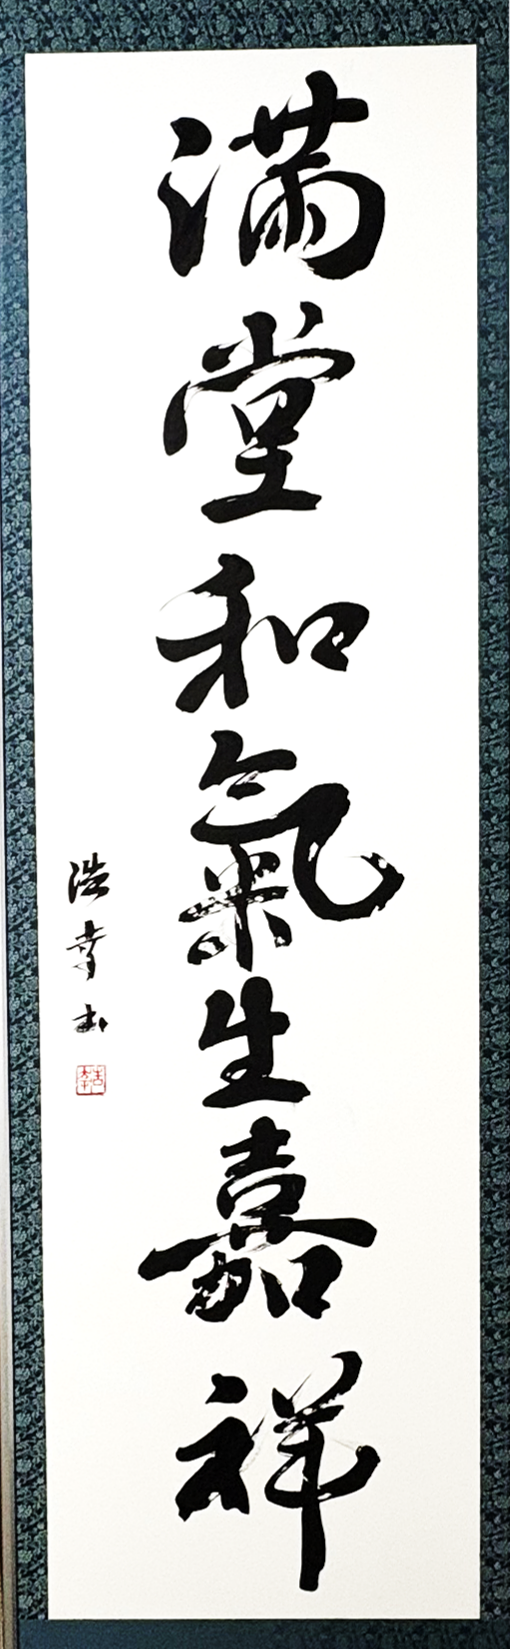 満堂和氣生嘉祥
浩幸書